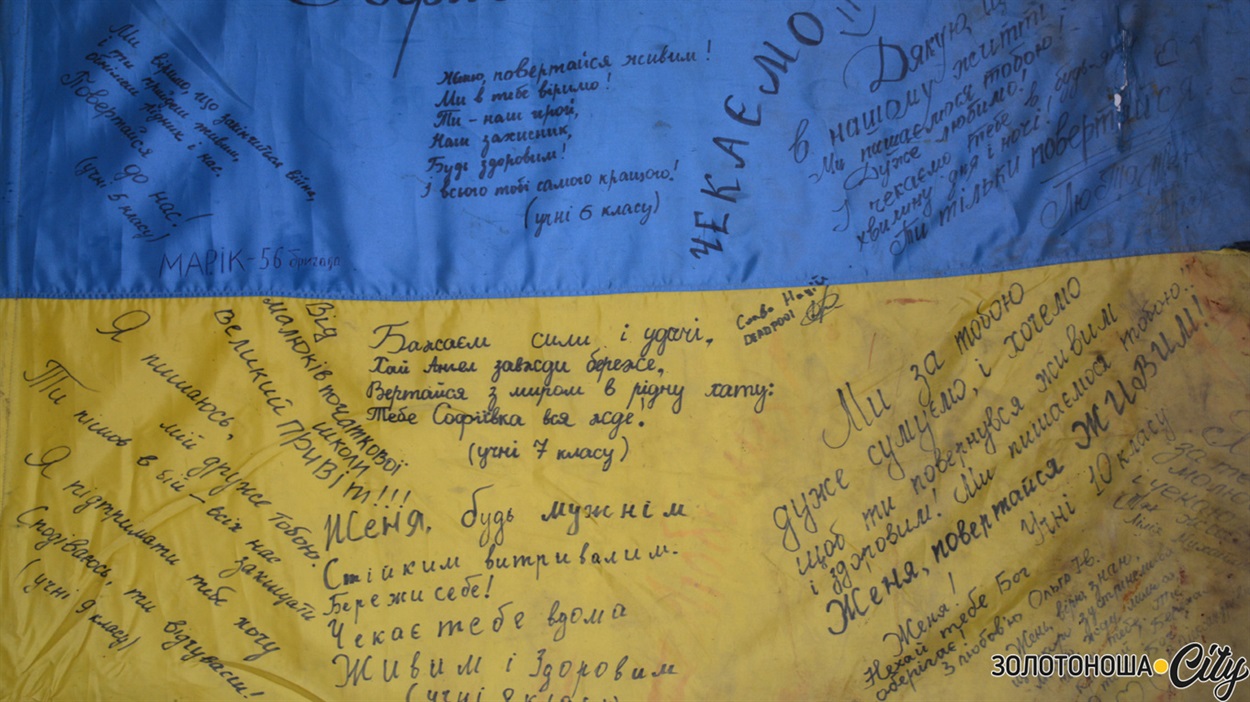 Ми віримо, що закінчиться війна,
і ти прийдеш живим,
обнімеш рідних і нас.
Повертайся до нас!
(учні 5 класу)
МАРІК-56 бригада
Женю, повертайся живим!
Ми в тебе віримо!
Ти - наш герой,
Наш захисник,
Будь здоровим!
І всього тобі самого кращого!
(учні 6 класу)
ЧЕКАЄМО
Дякую, що
в нашому житті!
Ми пишаємося тобою!
Дуже любимо!
І чекаємо тебе в будь-як
хвилину дня і ночі!
Ти тільки повертайся
Від
малюків початкової
школи
великий ПРИВІТ!!!
Я пишаюсь,
мій друже тобою.
Ти пішов в бій - всіх нас захищати
Я підтримати тебе хочу
Сподіваюсь, ти відчуваєш!
(учні 9 класу)
Бажаєм сили і удачі,
Хай Ангел завжди береже,
Вертайся з миром в рідну хату:
Тебе Софіївка вся жде.
(учні 7 класу)
Слава Нації
DEADPOOL
Женя, будь мужнім
Стійким витривалим.
Бережи себе!
Чекає тебе вдома
Живим і Здоровим
(учні 8 класу)
Ми за тобою
дуже сумуємо, і хочемо
щоб ти повернувся живим
і здоровим! Ми пишаємося тобою..
Женя, повертайся ЖИВИМ!!
!
Учні 10 класу
Женя. Нехай тебе Бог
оберігає!
З любов'ю Ольга Ів.
ЗОЛОТОНОША City